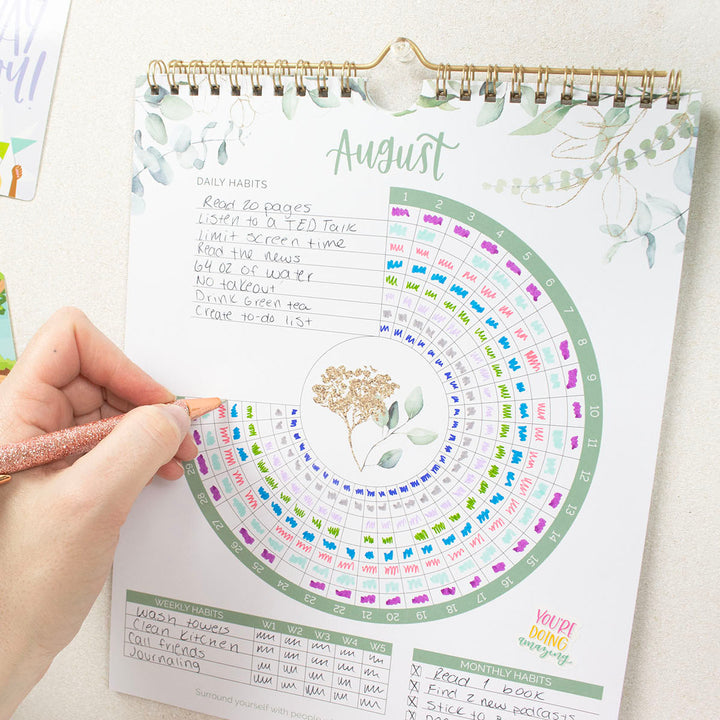 August
DAILY HABITS
Read 20 pages
Listen to a TED Talk
Limit screen time
Read the news
64 oz of water
No takeout
Drink Green tea
Create to-do list
1 2 3 4 5 6 7 8 9 10 11 12 13 14 15 16 17 18 19 20 21 22 23 24 25 26 27 28 29
WEEKLY HABITS W1 W2 W3 W4 W5
Wash towels
Clean Kitchen
Call friends
Journaling
YOU'RE
DOING
amazing
MONTHLY HABITS
X Read 1 book
X Find 2 new podcasts
X Stick to
Surround yourself with people